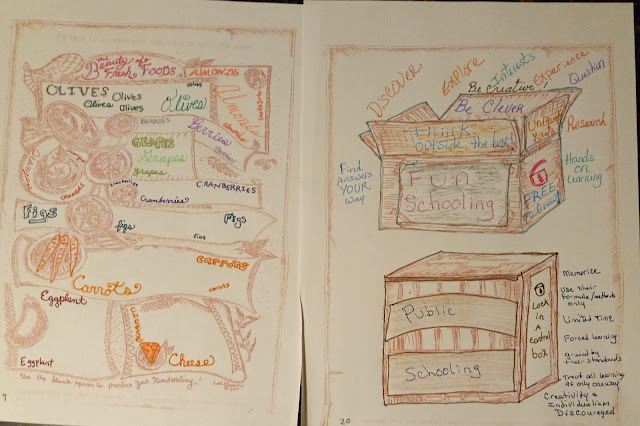 The Beauty of
Fresh Foods
ALMONDS
OLIVES
Olives
Olives Olives
Olives Olives
Olives
Almonds
almonds
BERRIES
Berries
GRAPES
Grapes
grapes
CRANBERRIES
Cranberries
Figs
figs
Figs
figs
CARROTS
Carrots
carrots
Eggplant
Eggplant
Cheese
Use the blank spaces to practice your Handwriting!
9
DISCOVER
EXPLORE
Interests
Experience
Be Creative!
Question
Be Clever
Think
outside the box
Research
Find
Answers
YOUR
Way
Fun
Schooling
FREE
To Grow!
Hands
On
Learning
Public
Schooling
Lock
in a
control
box
Memorize
Use their
formulas/methods
only
Limited Time
Forced learning
graded by
their standards
Treat all learning
as only one way
Creativity &
Individualism
Discouraged
20